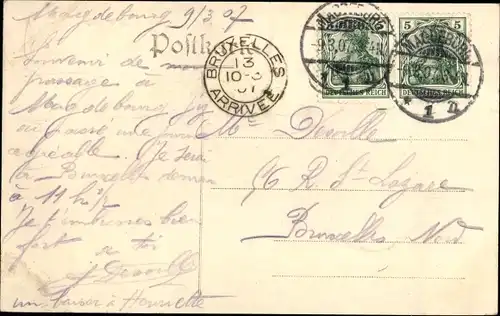 Magdebourg 9/3.07
Postkarte
Souvenir de mon
passage à
Magdebourg j'y
ai passé une
agréable. Je serai
à Bruxelles demain
à 11 h ½
Je t'embrasse bien
fort
à toi
un baiser à Henriette
BRUXELLES
13
10-3
07
ARRIVÉE
MAGDEBURG
9.3.07
* 1
MAGDEBURG
* 1 n
5 5
DEUTSCHES REICH
DEUTSCHES REICH
Me Deville
96 R St Lazare
Bruxelles Nord